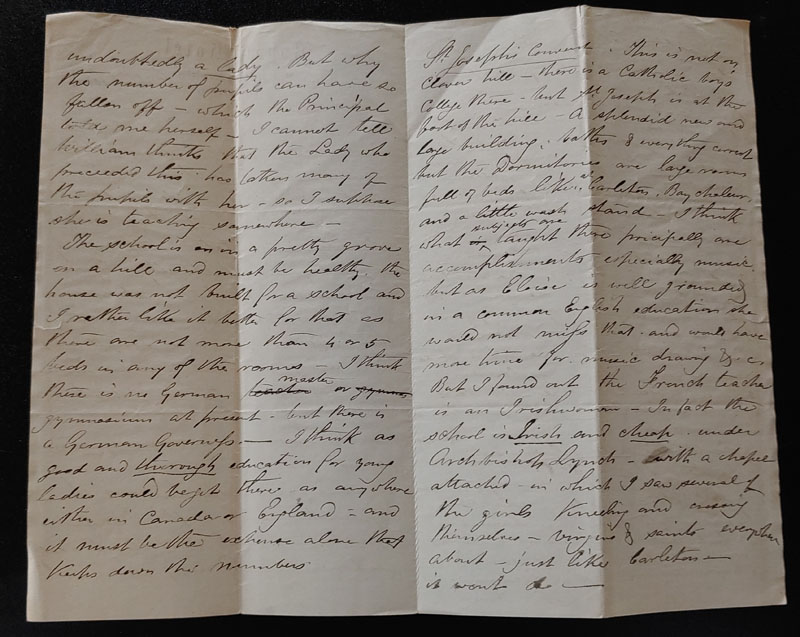 undoubtedly a lady. But why
the number of pupils can have so
fallen off – which the Principal
told me herself – I cannot tell
William thinks that the Lady who
preceeded this has taken many of
the pupils with her – so I suppose
she is teaching somewhere –
The school is in a pretty grove
on a hill and must be healthy. the
house was not built for a school and
I rather like it better for that as
there are not more than 4 or 5
beds in any of the rooms – I think
there is no German master or
gymnasium at present – but there is
a German Governess. – I think as
good and thorough education for young
ladies could be got there as anywhere
either in Canada or England – and
it must be the expense alone that
keeps down the numbers
St Joseph's Convent. This is not on
Clover hill – there is a Catholic boy's
College there – but St Josephs is at the
foot of the hill – A splendid new and
large building, baths & everything correct
but the Dormitories are large rooms
full of beds like at Carleton, Bay Chaleur.
and a little wash stand – I think
what subjects are taught there pricipally are
accomplishments especially music.
but as Eloise is well grounded
in a common English education she
would not miss that and would have
more time for music drawing &.c.
But I found out the French teacher
is an Irishwoman – In fact the
school is Irish and cheap. under
Archbishop Lynch – with a chapel
attached – in which I saw several of
the girls kneeling and crossing
themselves – virgins & saints
about – just like Carleton –
it wont do –